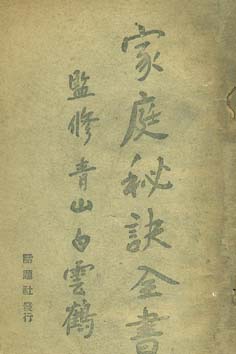 家庭秘訣全書
監修青山白雲鶴
社發行